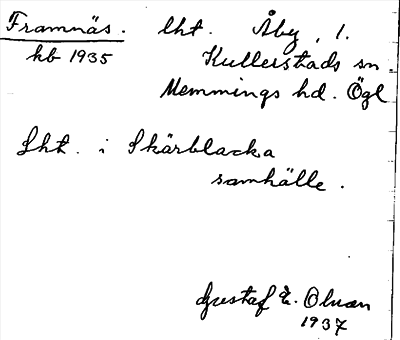 Framnäs. lht. Åby, 1.
kb 1935 Kullerstads sn
Memmings hd. Ögl
Lht. i Skärblacka
samhälle.
Gustaf E. Olson
1937